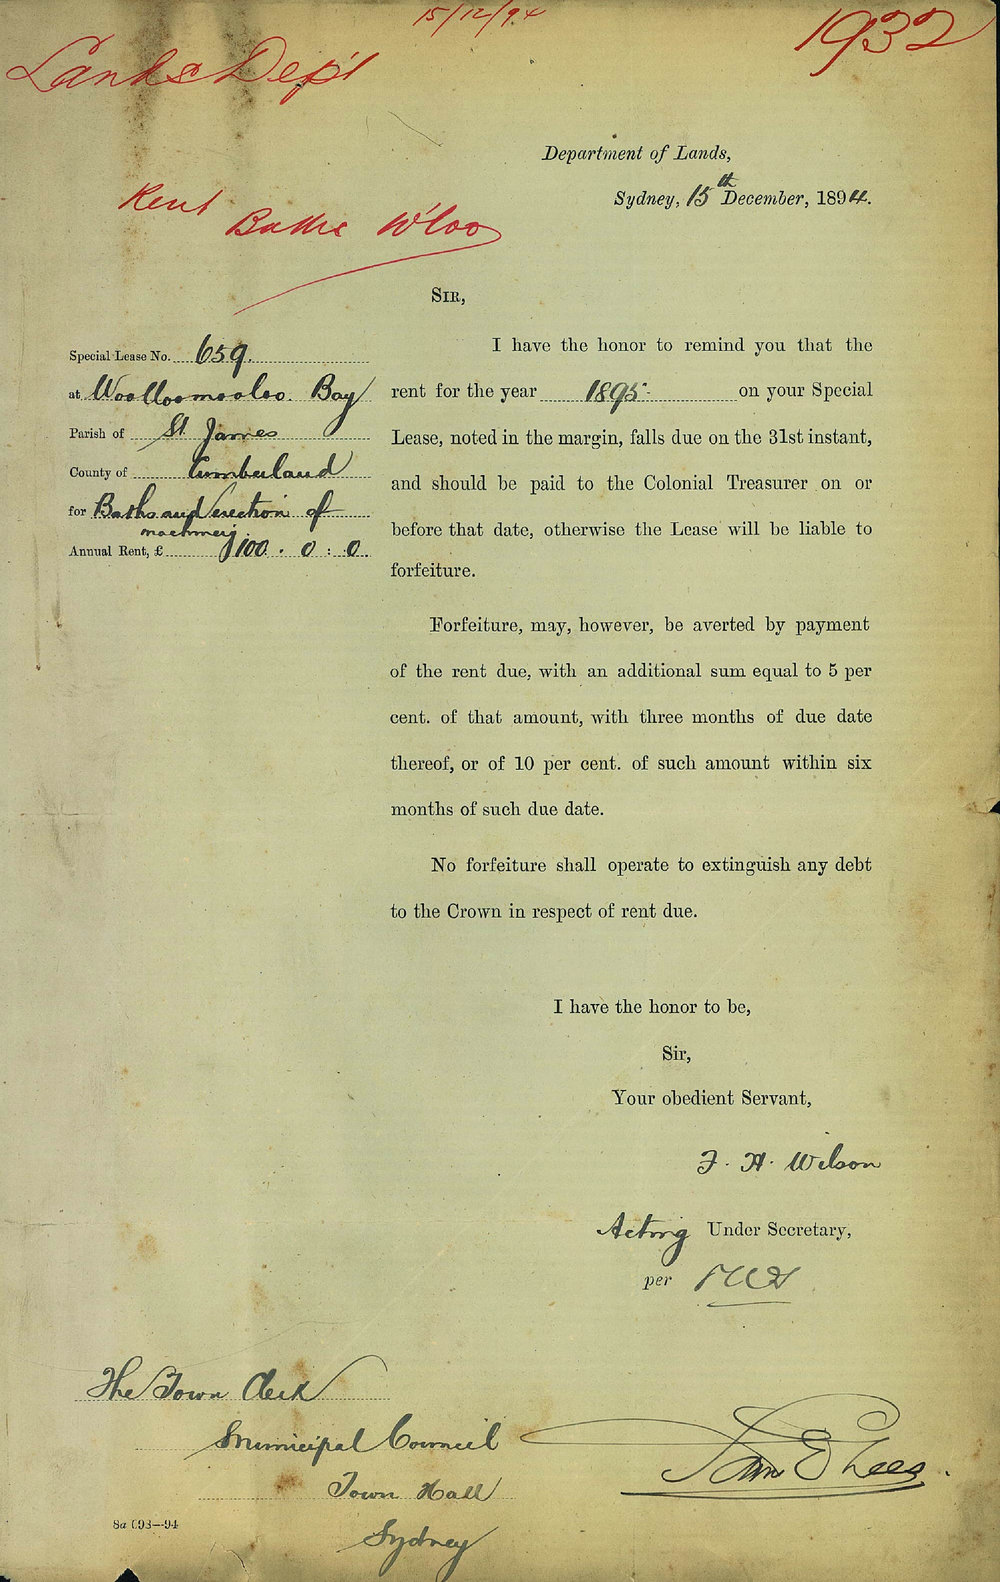 15/12/94
Lands Dep't
1932
Department of Lands,
Sydney, 15th December, 1894.
Rent
Baths W'loo
SIR,
Special Lease No. 659.
at Woolloomooloo Bay
Parish of St James
County of Cumberland
for Baths and erection of
machinery
Annual Rent, £ 100 . 0 : 0.
I have the honor to remind you that the
rent for the year 1895 on your Special
Lease, noted in the margin, falls due on the 31st instant,
and should be paid to the Colonial Treasurer on or
before that date, otherwise the Lease will be liable to
forfeiture.
Forfeiture, may, however, be averted by payment
of the rent due, with an additional sum equal to 5 per
cent. of that amount, with three months of due date
thereof, or of 10 per cent. of such amount within six
months of such due date.
No forfeiture shall operate to extinguish any debt
to the Crown in respect of rent due.
I have the honor to be,
Sir,
Your obedient Servant,
F. H. Wilson
Acting Under Secretary,
per
The Town Clerk
Municipal Council
Town Hall
Sydney
Sam E Lees.
8a 693—94